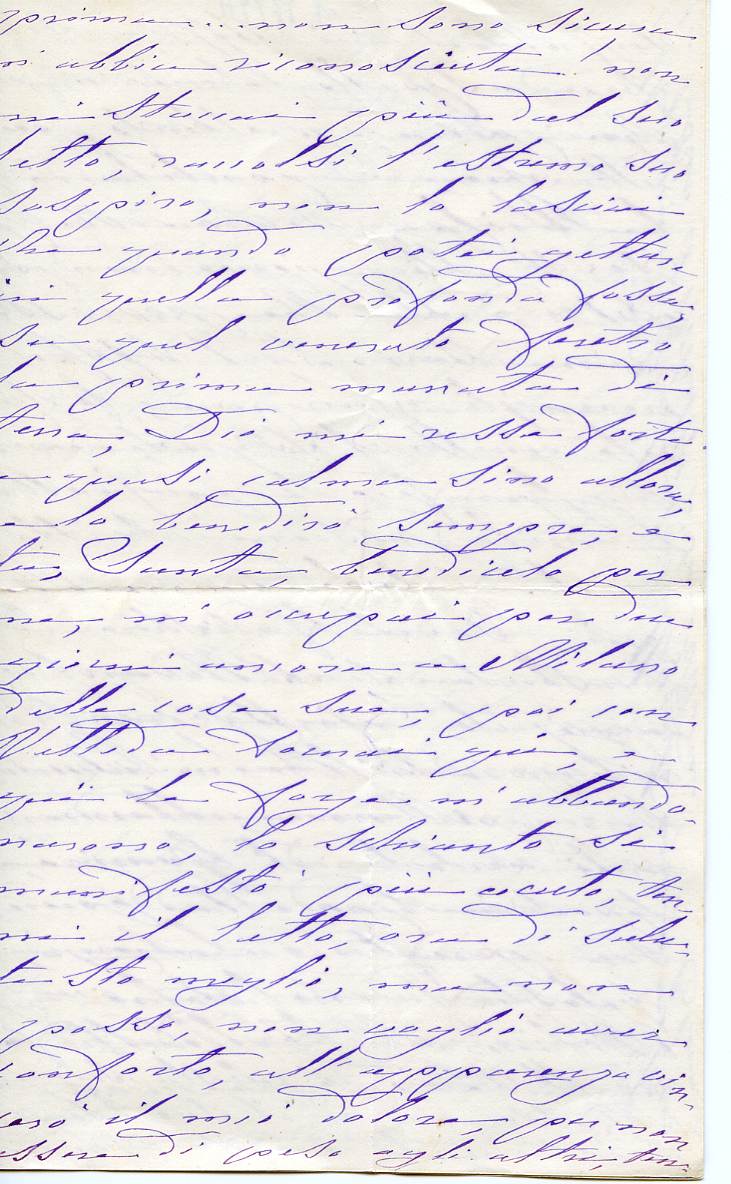 prima... non sono sicura
mi abbia riconosciuta! non
mi staccai più dal suo
letto, raccolsi l'estremo suo
sospiro, non lo lasciai
che quando potei gettare
in quella profonda fossa,
su quel venerato feretro
la prima manata di
terra, Dio mi resse forte
e quasi calma sino allora,
e lo benedirò sempre, e
tu, Santa, benedicelo per
me, mi occupai per due
giorni ancora a Milano
delle cose sue, poi con
Velleda tornai quì, e
quì le forze m'abbando-
narono, lo schianto si
manifestò più acuto, ten-
ni il letto, ora di salu-
te sto meglio, ma non
posso, non voglio aver
conforto, all'apparenza vin-
cerò il mio dolore, per non
essere di peso agli altri,